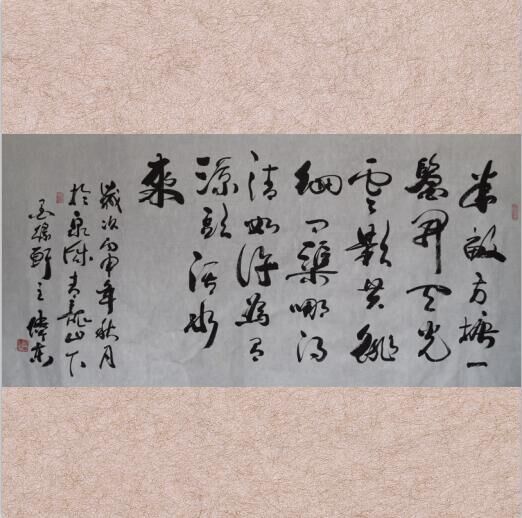 半畝方塘一
鑒開天光
雲影共徘
徊问渠哪得
清如許為有
源頭活水
來
歲次丙申年秋月
於泉城青龍山下
軒主